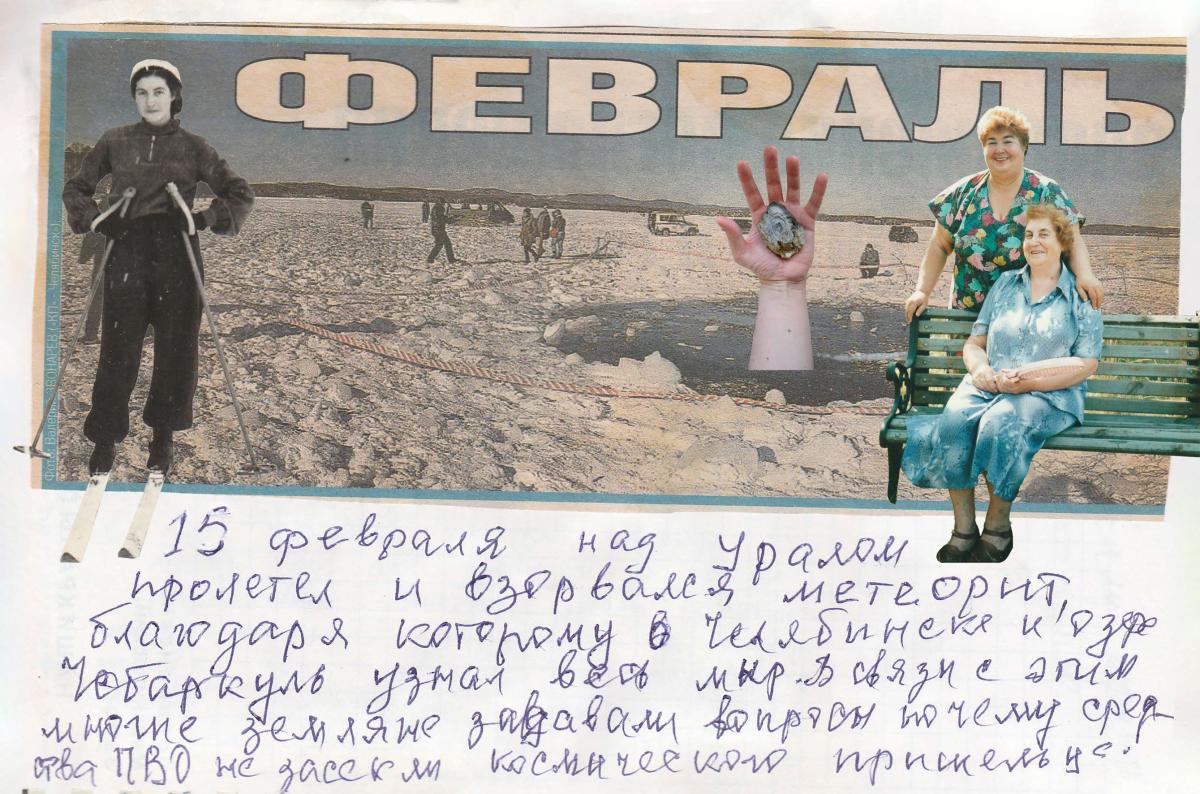 ФЕВРАЛЬ
Фото: Валерия ЗВОНАРЕВА («КП» - Челябинск).
15 февраля над Уралом
пролетел и взорвался метеорит,
благодаря которому о Челябинске и озере
Чебаркуль узнал весь мир. В связи с этим
многие земляне задавали вопросы почему сред-
ства ПВО не засекли космического пришельца.